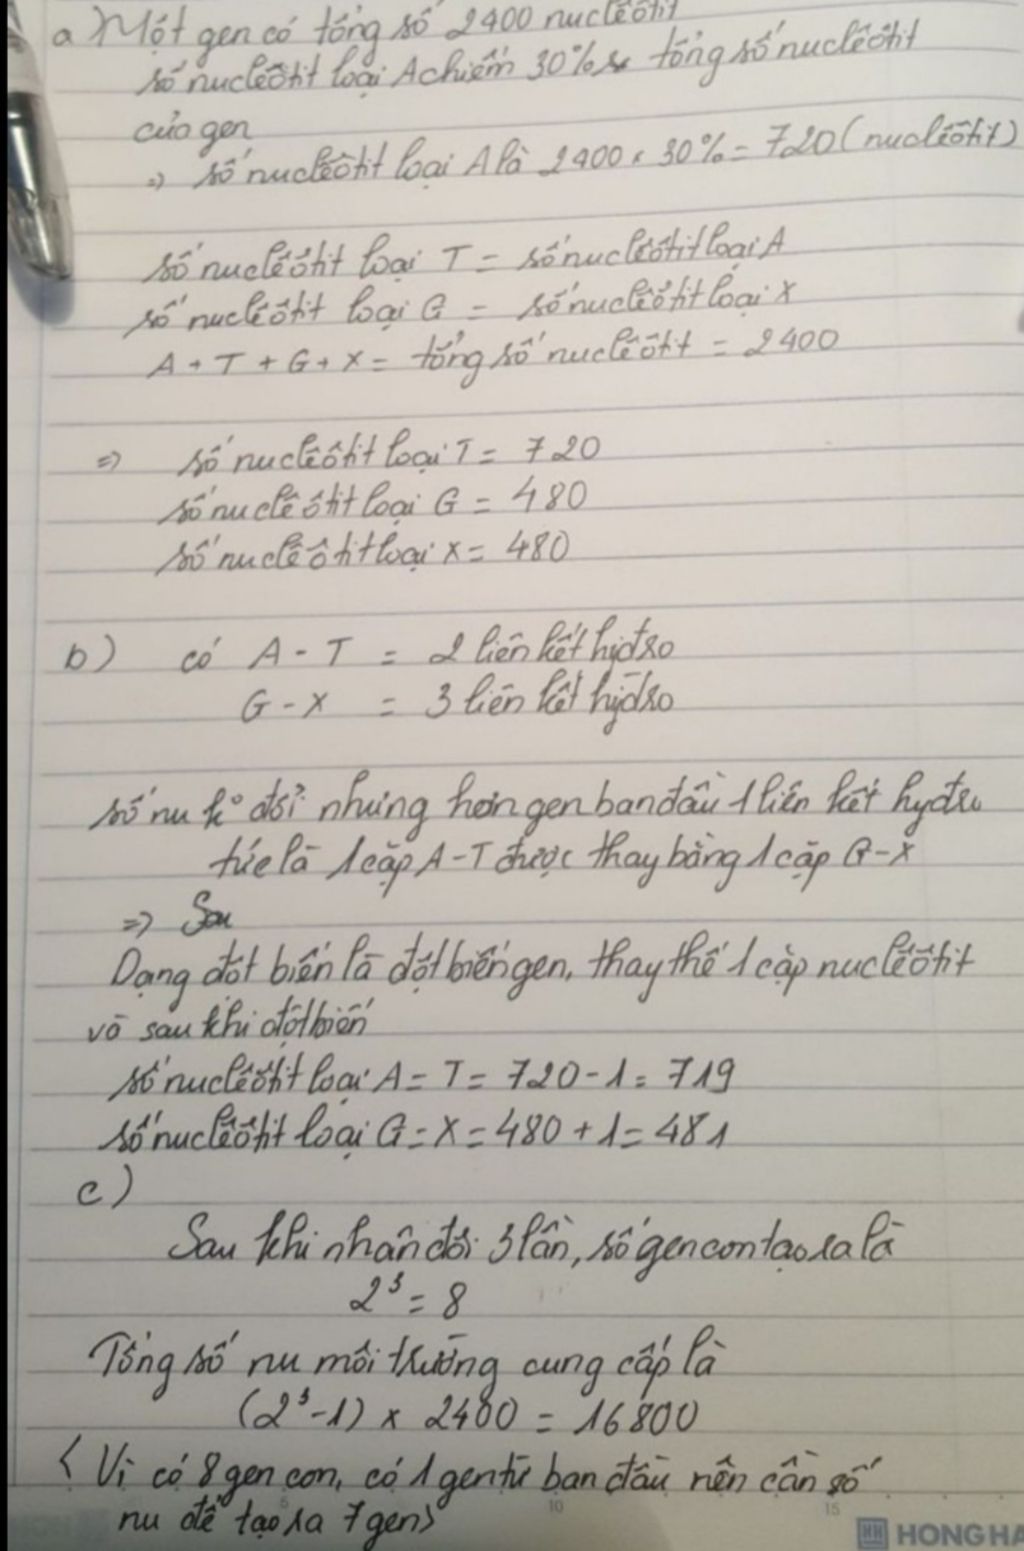 a Một gen có tổng số 2400 nuclêôtit
số nuclêôtit loại A chiếm 30% tổng số nuclêôtit
của gen
=> số nuclêôtit loại A là 2400 × 30% = 720 (nuclêôtit)
số nuclêôtit loại T = số nuclêôtit loại A
số nuclêôtit loại G = số nuclêôtit loại X
A + T + G + X = tổng số nuclêôtit = 2400
=> số nuclêôtit loại T = 720
số nuclêôtit loại G = 480
số nuclêôtit loại X = 480
b) có A - T = 2 liên kết hyđro
G - X = 3 liên kết hyđro
số nu k° đổi nhưng hơn gen ban đầu 1 liên kết hyđro
tức là 1 cặp A-T được thay bằng 1 cặp G-X
=> Sau
Dạng đột biến là đột biến gen, thay thế 1 cặp nuclêôtit
và sau khi đột biến
số nuclêôtit loại A = T = 720 - 1 = 719
số nuclêôtit loại G = X = 480 + 1 = 481
c)
Sau khi nhân đôi 3 lần, số gen con tạo ra là
2³ = 8
Tổng số nu môi trường cung cấp là
(2³-1) × 2400 = 16800
< Vì có 8 gen con, có 1 gen từ ban đầu nên cần số
nu để tạo ra 7 gen>
5 10 15
HH HONG HA